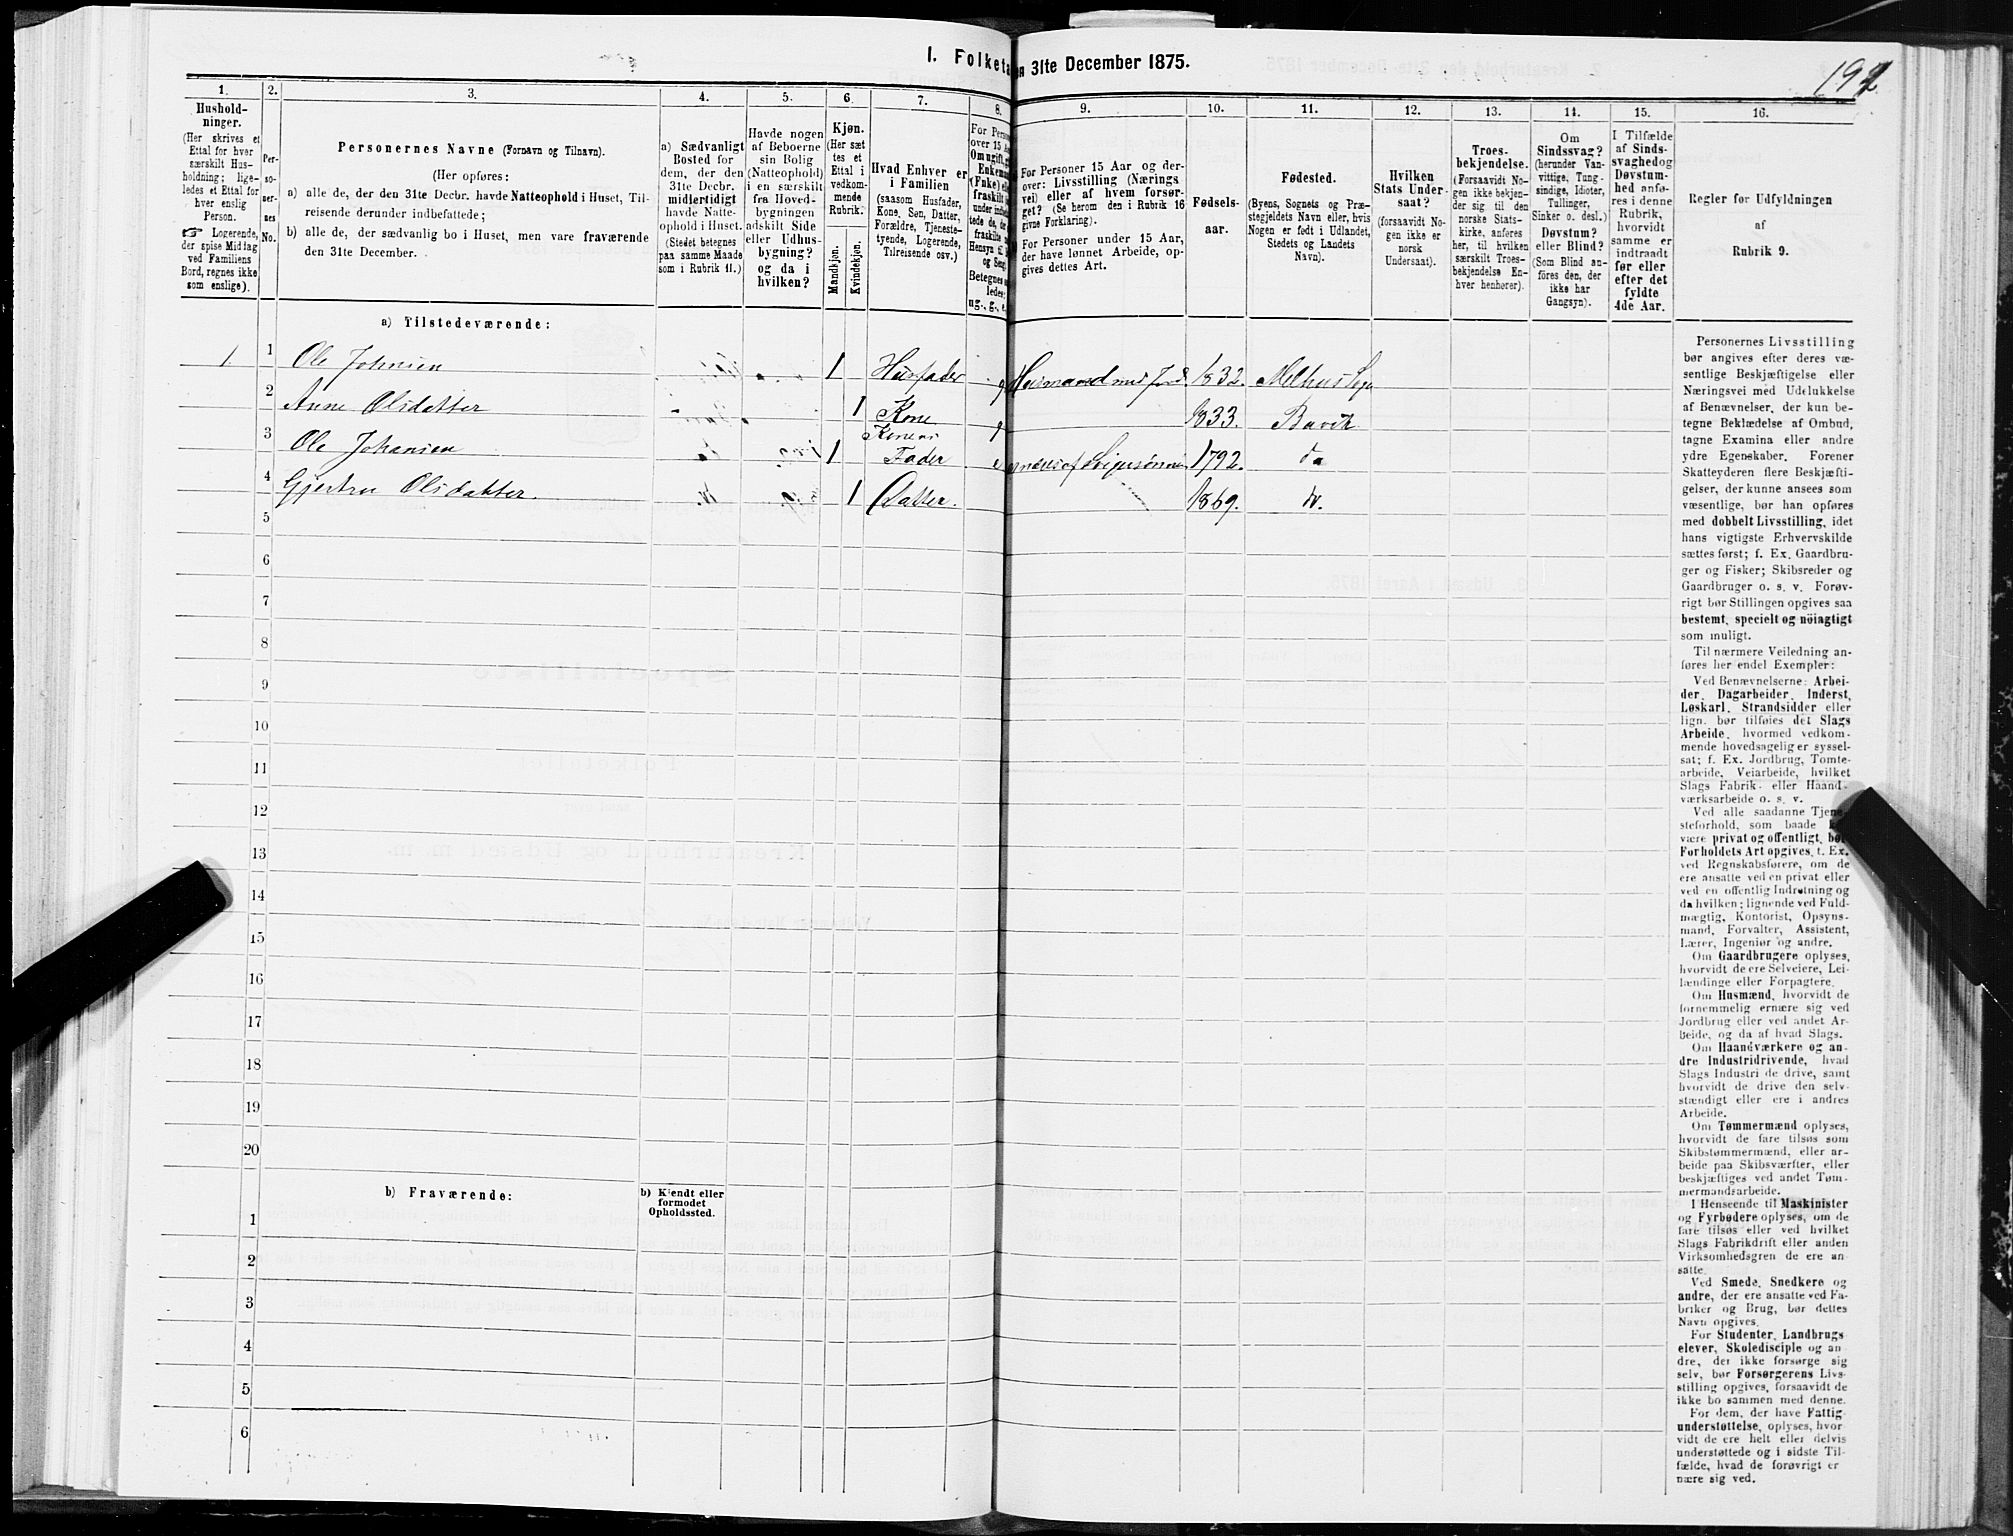 I. Folketa
en 31te December 1875.
192
1.
2.
3.
4.
5.
6.
7.
8.
9.
10.
11.
12.
13.
14.
15.
16.
Hushold-
ninger.
(Her skrives et
Ettal for hver
særskilt Hus-
holdning; lige-
ledes et Ettal for
hver enslig
Person.
☞ Logerende,
der spise Middag
ved Familiens
Bord, regnes ikke
som enslige).
Per-
so-
ner-
nes
No.
Personernes Navne (Fornavn og Tilnavn).
(Her opføres:
a) alle de, der den 31te Decbr. havde Natteophold i Huset, Til-
reisende derunder indbefattede;
b) alle de, der sædvanlig bo i Huset, men vare fraværende
den 31te December.
a) Sædvanligt
Bosted for
dem, der den
31te Decbr.
midlertidigt
havde Natte-
ophold i Huset.
(Stedet betegnes
paa samme Maade
som i Rubrik 11.)
Havde nogen
af Beboerne
sin Bolig
(Natteophold)
i en særskilt
fra Hoved-
bygningen
adskilt Side
eller Udhus-
bygning?
og da i
hvilken?
Kjøn.
(Her sæt
tes et
Ettal i
vedkom-
mende
Rubrik.
Mandkjøn.
Kvindekjøn.
Hvad Enhver er
i Familien
(saasom Husfader,
Kone, Søn, Datter,
Forældre, Tjeneste-
tyende, Logerende,
Tilreisende osv.)
For Perso
over 15 Aa
Om ugift, g
Enkem
(Enke) el
fraskilt
Betegnes
ledes:
ug., g., e.
For Personer 15 Aar og der-
over: Livsstilling (Nærings
vei) eller af hvem forsør-
get? (Se herom den i Rubrik 16
givne Forklaring).
For Personer under 15 Aar,
der have lønnet Arbeide, op-
gives dettes Art.
Fødsels-
aar.
Fødested.
(Byens, Sognets og Præ-
stegjeldets Navn eller, hvis
Nogen er født i Udlandet,
Stedets og Landets
Navn).
Hvilken
Stats Under-
saat?
(forsaavidt No-
gen ikke er
norsk
Undersaat).
Troes-
bekjendelse.
(Forsaavidt No-
gen ikke bekjen-
der sig til den
norske Stats-
kirke, anføres
her, til hvilken
særskilt Troes-
bekjendelse En-
hver henhører).
Om
Sindssvag?
(herunder Van-
vittige, Tung-
sindige, Idioter,
Tullinger,
Sinker o. desl.)
Døvstum?
eller Blind?
(Som Blind an-
føres den, der
ikke har
Gangsyn).
I Tilfælde
af Sinds-
svaghed og
Døvstum-
hed anfø-
res i denne
Rubrik,
hvorvidt
samme er
indtraadt
før eller
efter det
fyldte
4de Aar.
Regler for Udfyldningen
af
Rubrik 9.
a) Tilstedeværende:
1 1 Ole Johnsen 1 Husfader g Husmand med Jord 1832. Melhus Sogn
2 Anne Olsdatter 1 Kone g 1833. Buvik
3 Ole Johansen 1 Konens Fader e af Svigersønnen 1792. do
4 Gjertru Olsdatter. 1 Datter. 1869. do.
5
6
7
8
9
10
11
12
13
14
15
16
17
18
19
20
b) Fraværende:
b) Kjendt eller
formodet
Opholdssted.
1
2
3
4
5
6
Personernes Livsstilling
bør angives efter deres væ-
sentlige Beskjæftigelse eller
Næringsvei med Udelukkelse
af Benævnelser, der kun be-
tegne Beklædelse af Ombud,
tagne Examina eller andre
ydre Egenskaber. Forener
Skatteyderen flere Beskjæfti-
gelser, der kunne ansees som
væsentlige, bør han opføres
med dobbelt Livsstilling, idet
hans vigtigste Erhvervskilde
sættes først; f. Ex. Gaardbru-
ger og Fisker; Skibsreder og
Gaardbruger o. s. v. Forøv-
rigt bør Stillingen opgives saa
bestemt, specielt og nöiagtigt
som muligt.
Til nærmere Veiledning an-
føres her endel Exempler:
Ved Benævnelserne: Arbei-
der, Dagarbeider, Inderst,
Løskarl, Strandsidder eller
lign. bør tilføies det Slags
Arbeide, hvormed vedkom-
mende hovedsagelig er syssel-
sat; f. Ex. Jordbrug, Tomte-
arbeide, Veiarbeide, hvilket
Slags Fabrik- eller Haand-
værksarbeide o. s. v.
Ved alle saadanne Tjene-
steforhold, som baade
være privat og offentligt, bør
Forholdets Art opgives, t. Ex.
ved Regnskabsførere, om de
ere ansatte ved en privat eller
ved en offentlig Indretning og
da hvilken; lignende ved Fuld-
mægtig, Kontorist, Opsyns-
mand, Forvalter, Assistent,
Lærer, Ingeniør og andre.
Om Gaardbrugere oplyses,
hvorvidt de ere Selveiere, Lei-
lændinge eller Forpagtere.
Om Husmænd, hvorvidt de
fornemmelig ernære sig ved
Jordbrug eller ved andet Ar-
beide, og da af hvad Slags.
Om Haandværkere og an-
dre Industridrivende, hvad
Slags Industri de drive, samt
hvorvidt de drive den selv-
stændigt eller ere i andres
Arbeide.
Om Tømmermænd oplyses,
hvorvidt de fare tilsøs som
Skibstømmermænd, eller ar-
beide paa Skibsværfter, eller
beskjæftiges ved andet Tøm-
mermandsarbeide.
I Henseende til Maskinister
og Fyrbødere oplyses, om de
fare tilsøs eller ved hvilket
Slags Fabrikdrift eller anden
Virksomhedsgren de ere an-
satte.
Ved Smede, Snedkere og
andre, der ere ansatte ved Fa-
briker og Brug, bør dettes
Navn opgives.
For Studenter, Landbrugs
elever, Skoledisciple og an
dre, der ikke forsørge sig
selv, bør Forsørgerens Livs-
stilling opgives, forsaavidt de
ikke bo sammen med denne.
For dem, der have Fattig
understøttelse, oplyses, hvor
vidt de ere helt eller delvis
understøttede og i sidste Til-
fælde, hvad de forøvrigt er
nære sig ved.